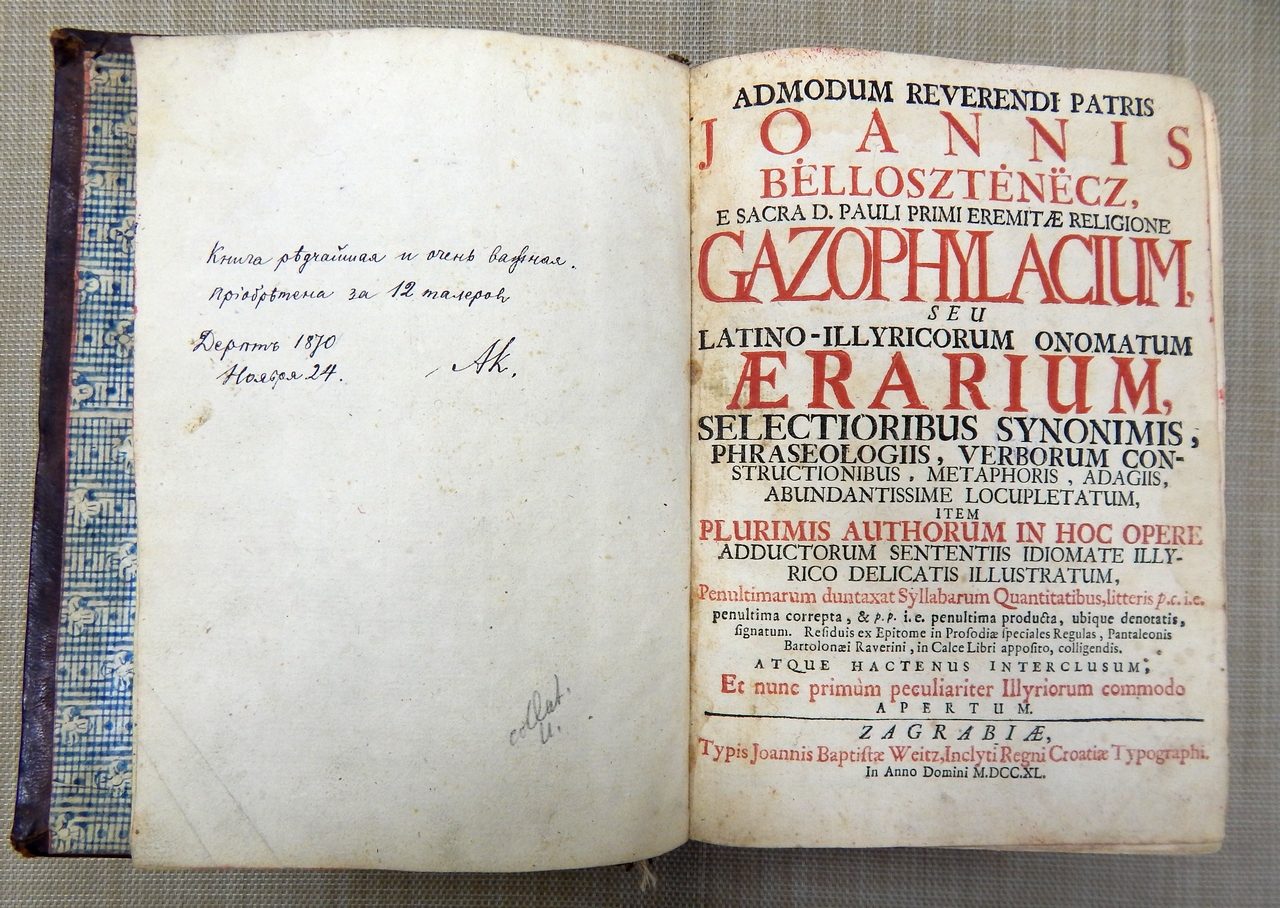 Книга рѣдчайшая и очень важная.
пріобрѣтена за 12 талеров
Дерптъ 1870
Ноября 24.
АК.
collat.
ADMODUM REVERENDI PATRIS
JOANNIS
BĖLLOSZTĖNËCZ,
E SACRA D. PAULI PRIMI EREMITÆ RELIGIONE
GAZOPHYLACIUM,
SEU
LATINO-ILLYRICORUM ONOMATUM
ÆRARIUM,
SELECTIORIBUS SYNONIMIS,
PHRASEOLOGIIS, VERBORUM CON-
STRUCTIONIBUS, METAPHORIS, ADAGIIS,
ABUNDANTISSIME LOCUPLETATUM,
ITEM
PLURIMIS AUTHORUM IN HOC OPERE
ADDUCTORUM SENTENTIIS IDIOMATE ILLY-
RICO DELICATIS ILLUSTRATUM,
Penultimarum duntaxat Syllabarum Quantitatibus, litteris p.c. i.e.
penultima correpta, & p.p. i.e. penultima producta, ubique denotatis,
ſignatum. Reſiduis ex Epitome in Proſodiæ ſpeciales Regulas, Pantaleonis
Bartolonæi Raverini, in Calce Libri appoſito, colligendis.
ATQUE HACTENUS INTERCLUSUM;
Et nunc primùm peculiariter Illyriorum commodo
APERTUM.
ZAGRABIÆ,
Typis Joannis Baptiſtæ Weitz, Inclyti Regni Croatiæ Typographi.
In Anno Domini M.DCC.XL.